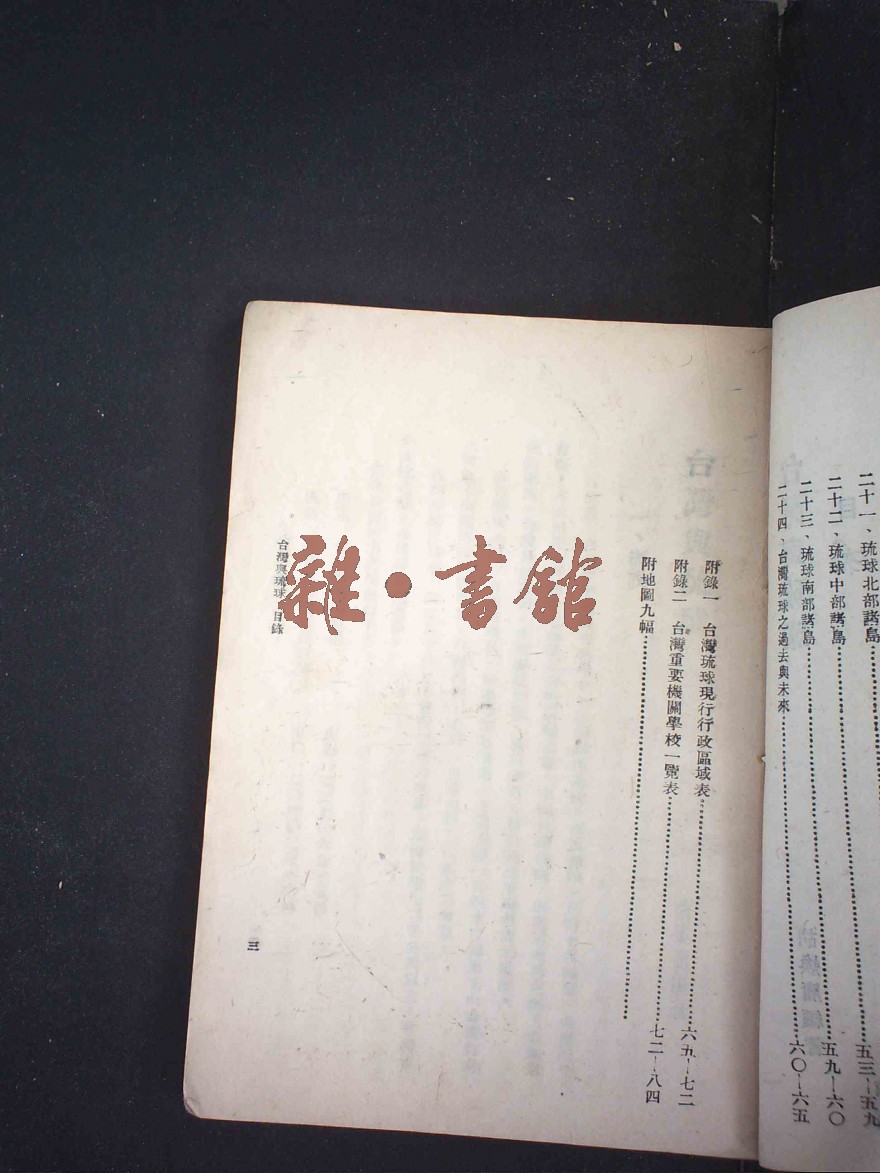 二十一、琉球北部諸島……五三—五九
二十二、琉球中部諸島……五九—六〇
二十三、琉球南部諸島……
二十四、台灣琉球之過去與未來……六〇—六五
附錄一　台灣琉球現行行政區域表……六五—七二
附錄二　台灣重要機關學校一覽表……七二—八四
附地圖九幅……
台灣與琉球　目錄
三
雜·書館